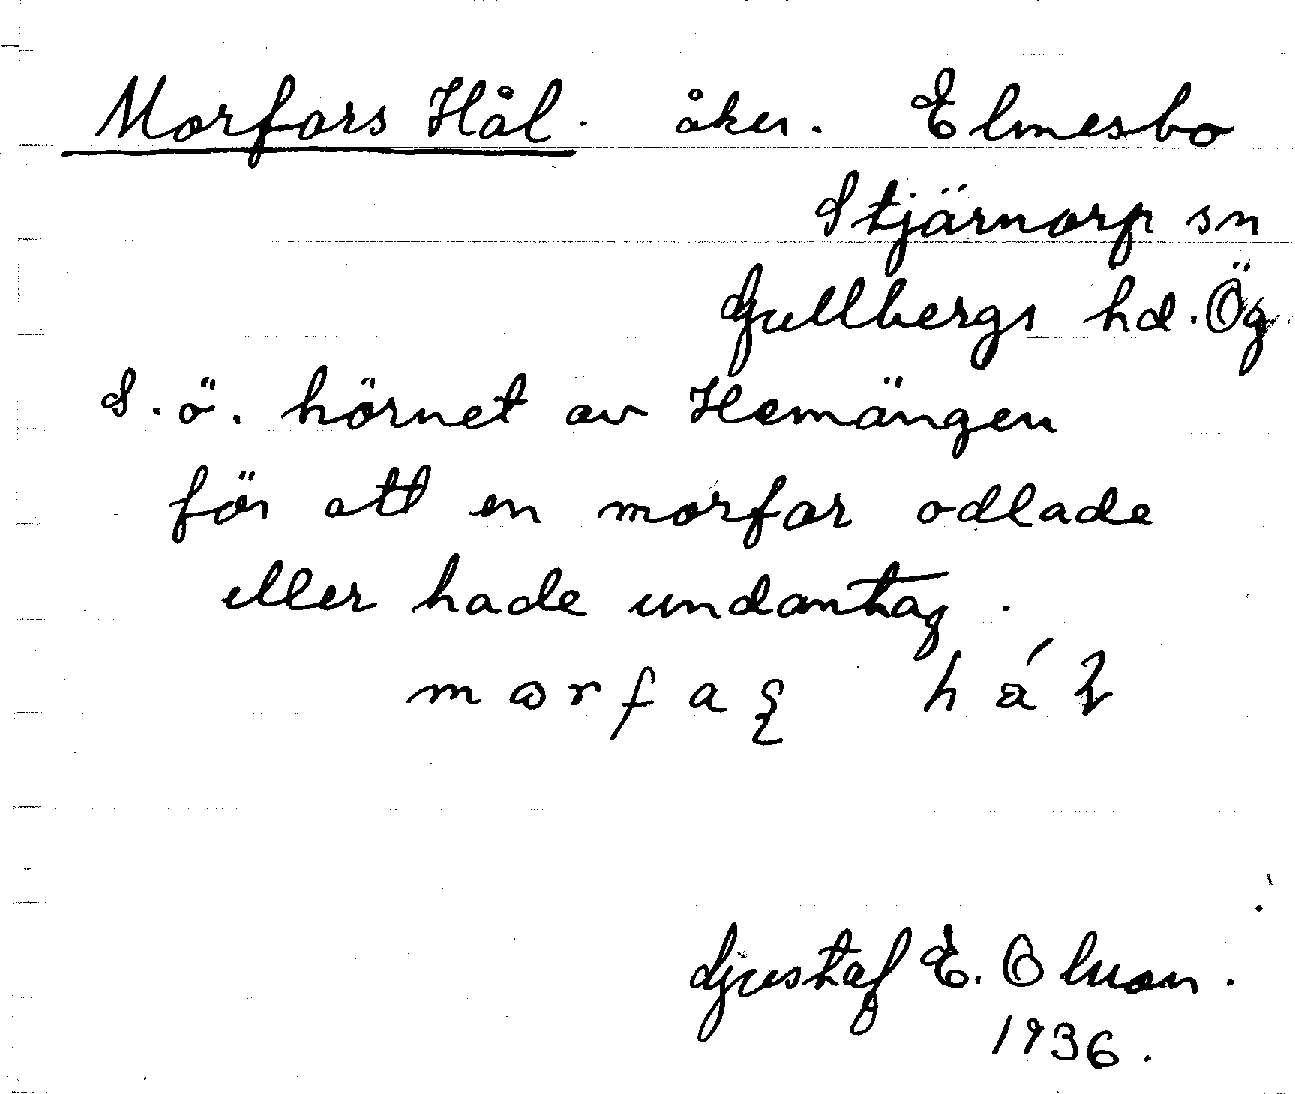 Morfors Hål. åker. Elmesbo
Stjärnorp sn
Gullbergs hd. Ög.
S. ö. hörnet av Hemängen
för att en morfar odlade
eller hade undantag.
morfa há
Gustaf E. Olsson.
1936.